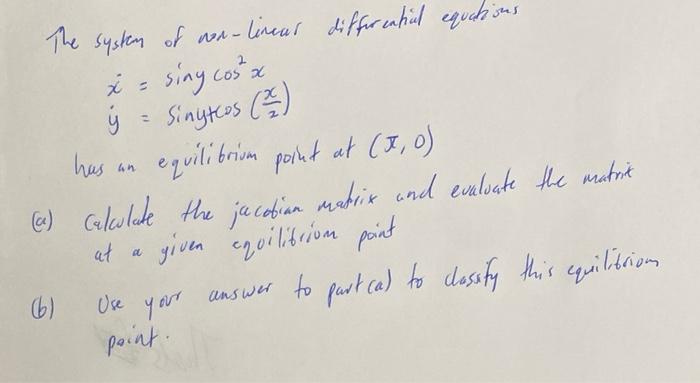 The system of non-linear differential equations
ẋ = siny cos² x
ẏ = siny+cos (x/2)
has an equilibrium point at (π, 0)
(a) Calculate the jacobian matrix and evaluate the matrix
at a given equilibrium point
(b) Use your answer to part (a) to classify this equilibrium
point.